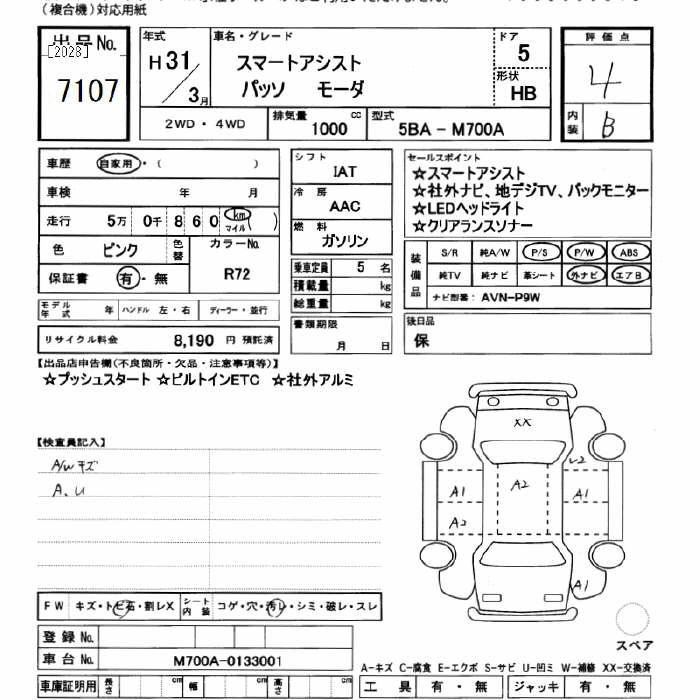 (複合機)対応用紙
出品No. 年式 車名・グレード ドア 評価点
[2028] H31/3月 スマートアシスト 5 4
7107 パッソ モーダ 形状 HB
2WD・4WD 排気量 1000 cc 型式 5BA - M700A 内装 B
車歴 自家用・( )
車検 年 月
走行 5万 0千 8 6 0 km マイル ( )
色 ピンク 色替 カラーNo.
保証書 有・無 R72
モデル年式 年 ハンドル 左・右 ディーラー・並行
リサイクル料金 8,190 円 預託済
シフト
IAT
冷房
AAC
燃料
ガソリン
乗車定員 5 名
積載量 kg
総重量 kg
書類期限
月 日
セールスポイント
☆スマートアシスト
☆社外ナビ、地デジTV、バックモニター
☆LEDヘッドライト
☆クリアランスソナー
装備品 S/R 純A/W P/S P/W ABS
純TV 純ナビ 革シート 外ナビ エアB
ナビ型番: AVN-P9W
後日品
保
【出品店申告欄(不良箇所・欠品・注意事項等)】
☆プッシュスタート ☆ビルトインETC ☆社外アルミ
【検査員記入】
A/Wキズ
A、U
XX
A2
A1 A1
A2
A1
FW キズ・トビ石・割レX シート内装 コゲ・穴・汚レ・シミ・破レ・スレ
登録No.
車台No. M700A-0133001
スペア
A-キズ C-腐食 E-エクボ S-サビ U-凹ミ W-補修 XX-交換済
車庫証明用 長さ cm 幅 cm 高さ cm 工具 有・無 ジャッキ 有・無